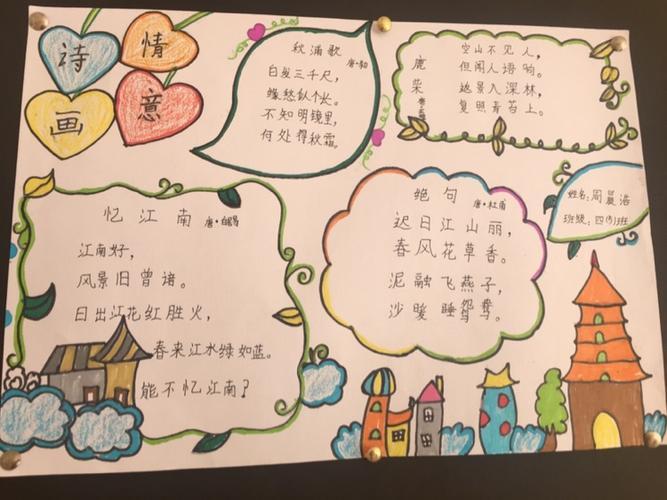 诗情
画意
秋浦歌
唐
白发三千尺，
缘愁似个长。
不知明镜里，
何处得秋霜。
鹿柴
唐
空山不见人，
但闻人语响。
返景入深林，
复照青苔上。
忆江南
唐·白居易
江南好，
风景旧曾谙。
日出江花红胜火，
春来江水绿如蓝。
能不忆江南？
绝句
唐·杜甫
迟日江山丽，
春风花草香。
泥融飞燕子，
沙暖睡鸳鸯。
姓名：周晨浩
班级：四班